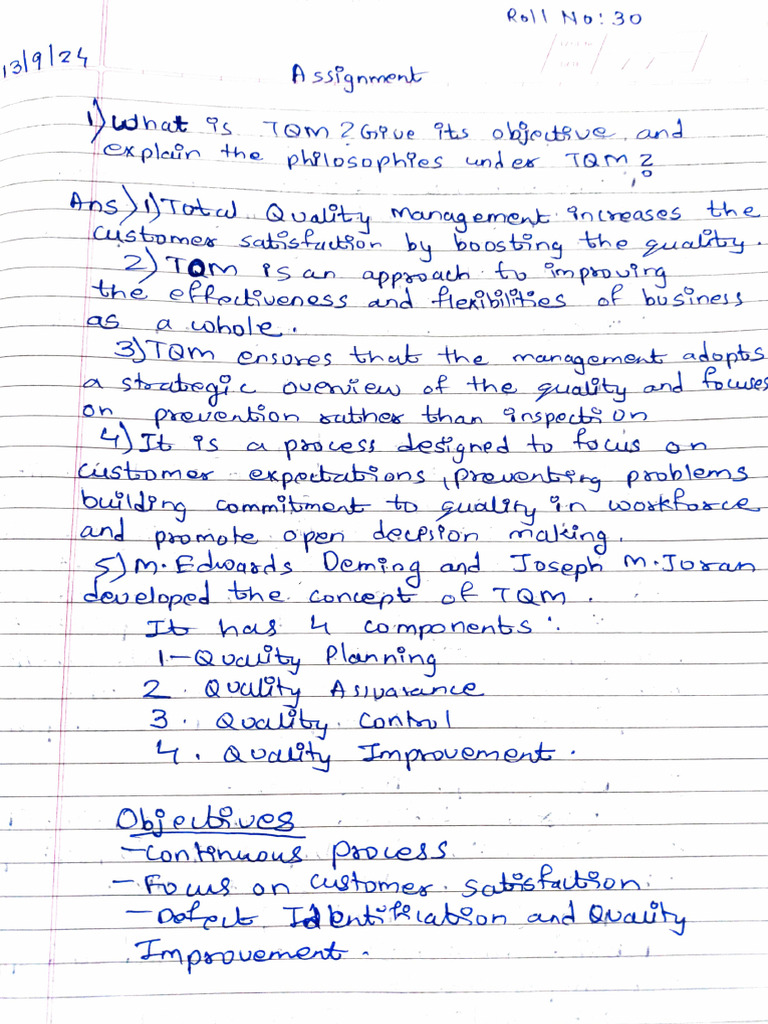 Roll No: 30
13/9/24
Assignment
1) What is TQM? Give its objective and
explain the philosophies under TQM?
Ans) 1) Total Quality Management increases the
customer satisfaction by boosting the quality.
2) TQM is an approach to improving
the effectiveness and flexibilities of business
as a whole.
3) TQM ensures that the management adopts
a strategic overview of the quality and focuses
on prevention rather than inspection
4) It is a process designed to focus on
customer expectations, preventing problems
building commitment to quality in workforce
and promote open decision making.
5) M. Edwards Deming and Joseph M. Juran
developed the concept of TQM.
It has 4 components:
1- Quality Planning
2. Quality Assuarance
3. Quality Control
4. Quality Improvement.
Objectives
- Continuous Process
- Focus on customer satisfaction.
- Defect Identification and Quality
Improvement.